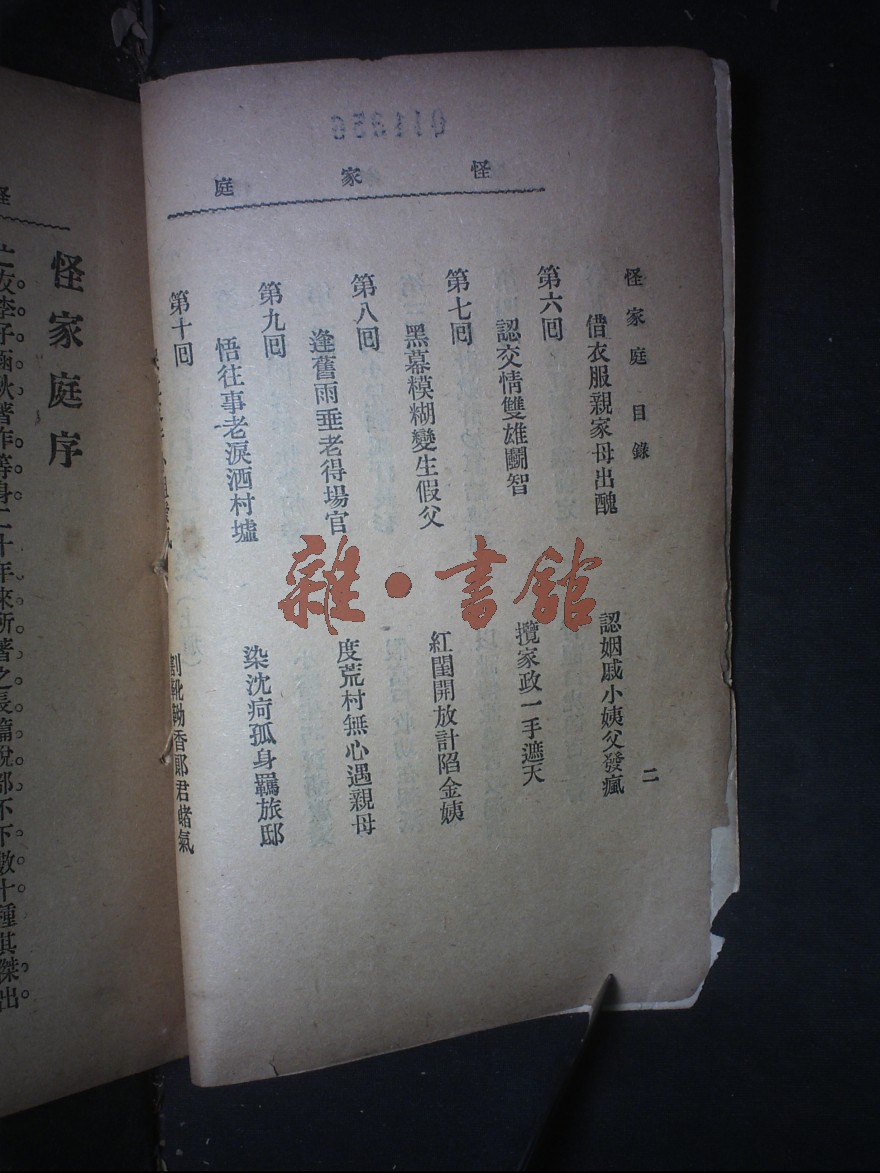 怪家庭
怪家庭 目錄 二
借衣服親家母出醜 認姻戚小姨父發瘋
第六回
認交情雙雄鬬智 攬家政一手遮天
第七回
黑幕模糊變生假父 紅閨開放計陷金姨
第八回
逢舊雨垂老得場官 度荒村無心遇親母
第九回
悟往事老淚洒村墟 染沈疴孤身羈旅邸
第十回
割靴勒香郎君睹氣
雜·書館
011356
怪
怪家庭序
亡友李子涵秋。著作等身。二十年來所著之長篇說部。不下數十種。其傑出